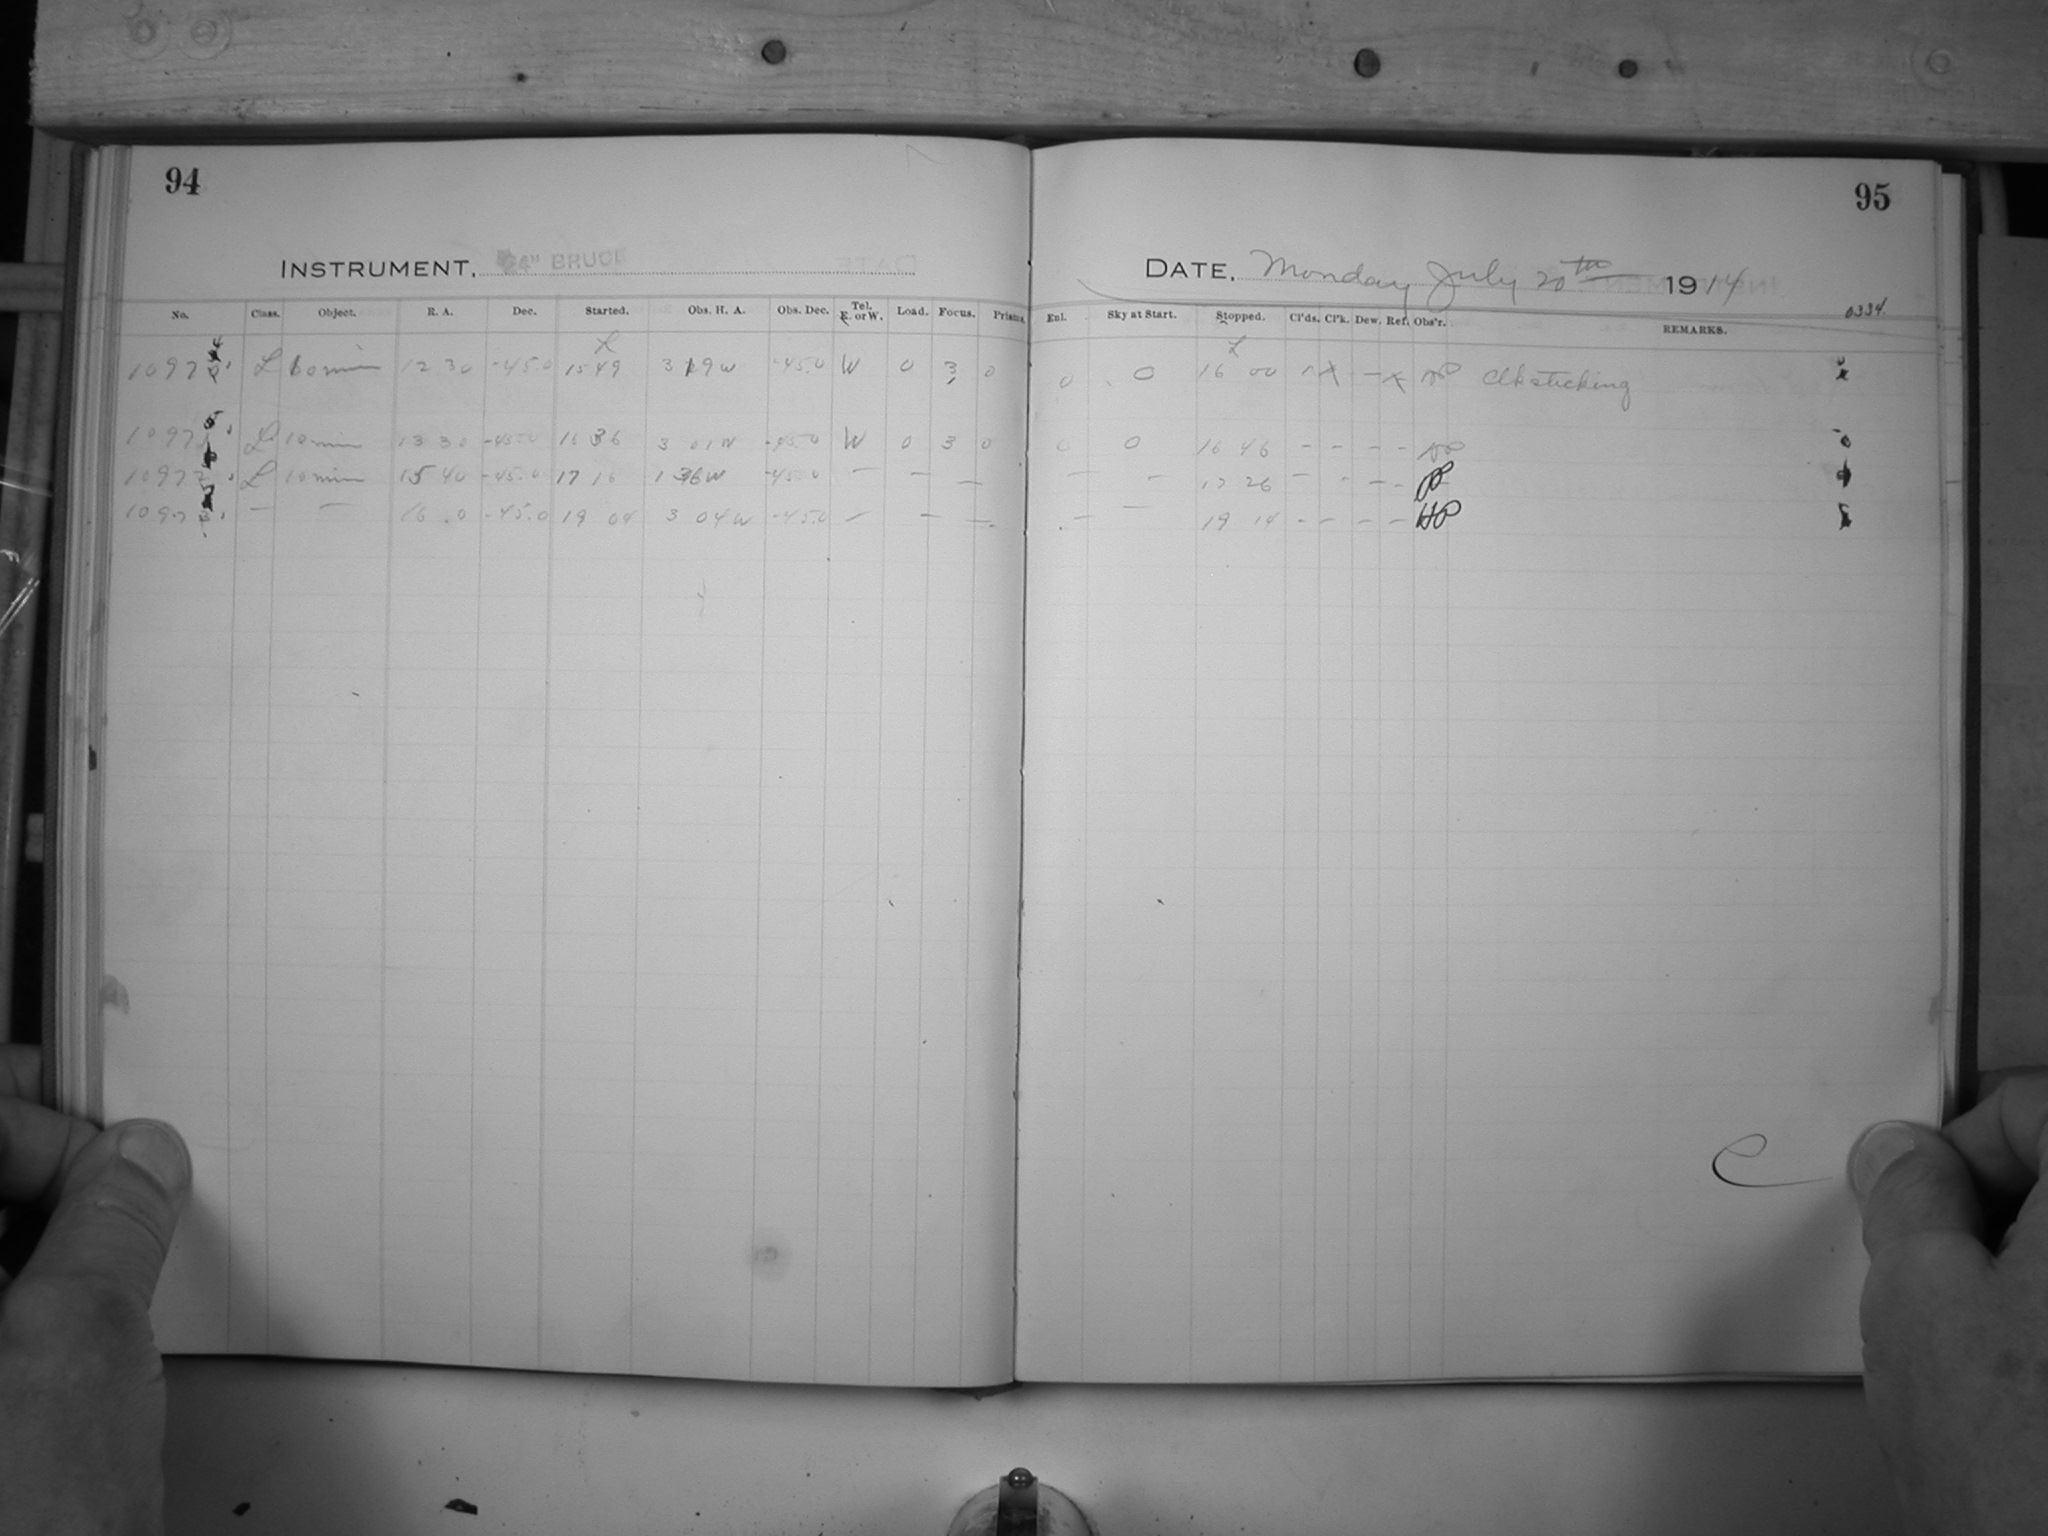 94
INSTRUMENT, 24" BRUCE
No. Class. Object. R. A. Dec. Started. Obs. H. A. Obs. Dec. Tel. E. or W. Load. Focus. Prisms.
L 10 min 12 30 -45.0 15 49 3 19 W -45.0 W 0 3 0
L 10 min 13 30 -45.0 16 36 3 01 W -45.0 W 0 3 0
L 10 min 15 40 -45.0 17 16 1 36 W -45.0 — — —
— — 16 0 -45.0 19 04 3 04 W -45.0 — — —
95
DATE, Monday July 20th 1914
0334
Enl. Sky at Start. Stopped. Cl'ds. Cl'k. Dew. Ref. Obs'r. REMARKS.
0 0 16 00 X — X Clk sticking
0 0 16 46 - - - -
— — 17 26 - - - -
— — 19 14 - - - - HP